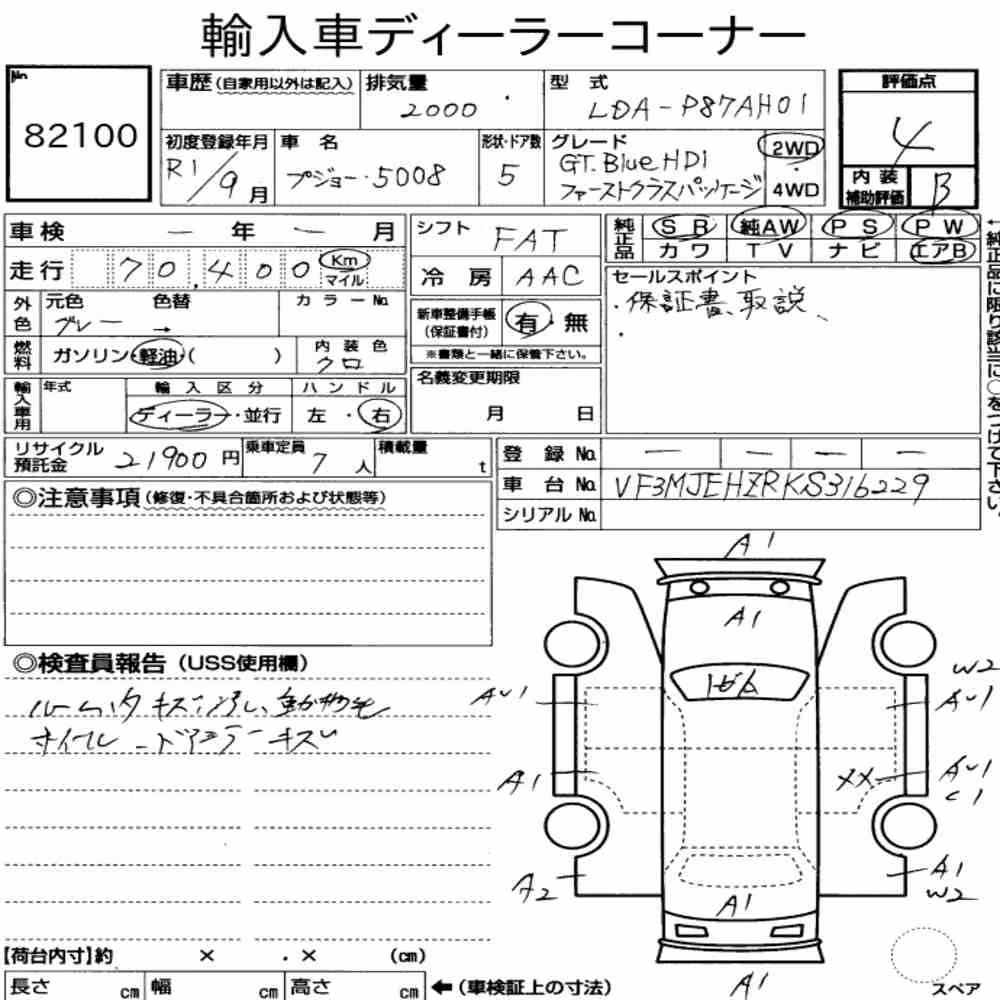 輸入車ディーラーコーナー
No.
82100
車歴(自家用以外は記入)
排気量
2000
型式
LDA-P87AH01
評価点
4
初度登録年月
R1/9月
車名
プジョー・5008
形状・ドア数
5
グレード
GT.BlueHDI
ファーストクラスパッケージ
2WD
4WD
内装
補助評価
B
車検 ー 年 ー 月
シフト
FAT
純正品
SR 純AW PS PW
カワ TV ナビ エアB
走行 70,400 Km
マイル
冷房 AAC
セールスポイント
・保証書、取説、
・
外色
元色 色替 カラーNo.
グレー →
新車整備手帳
(保証書付)
有・無
※書類と一緒に保管下さい。
燃料
ガソリン・軽油・( )
内装色
クロ
名義変更期限
月 日
輸入車用
年式
輸入区分
ディーラー・並行
ハンドル
左・右
リサイクル
預託金
21900円
乗車定員
7人
積載量
t
登録No. ー ー ー ー
車台No. VF3MJEHZRKS316229
シリアルNo.
←純正品に限り該当に○をつけて下さい。
◎注意事項(修復・不具合箇所および状態等)
◎検査員報告(USS使用欄)
動物毛
ホイール
A1
A1
W2
A1
A1
C1
XX
A2
A1
W2
A1
A1
【荷台内寸】約 × . × (cm)
長さ cm 幅 cm 高さ cm ←(車検証上の寸法)
スペア